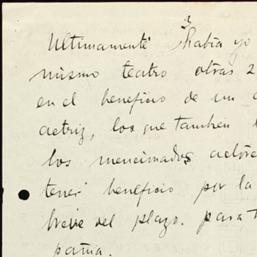 Ultimamente había yo
mismo teatro otras 2
en el beneficio de un
actriz, los que también
los mencionados actore
tener beneficio por la
breve del plazo. para